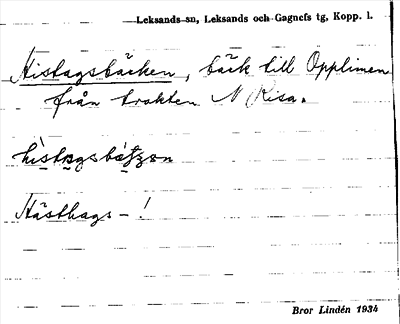 Leksands sn, Leksands och Gagnefs tg, Kopp. l.
Histagsbäcken, bäck till Opplimen
från trakten N Risa.
Hästhags- !
Bror Lindén 1934